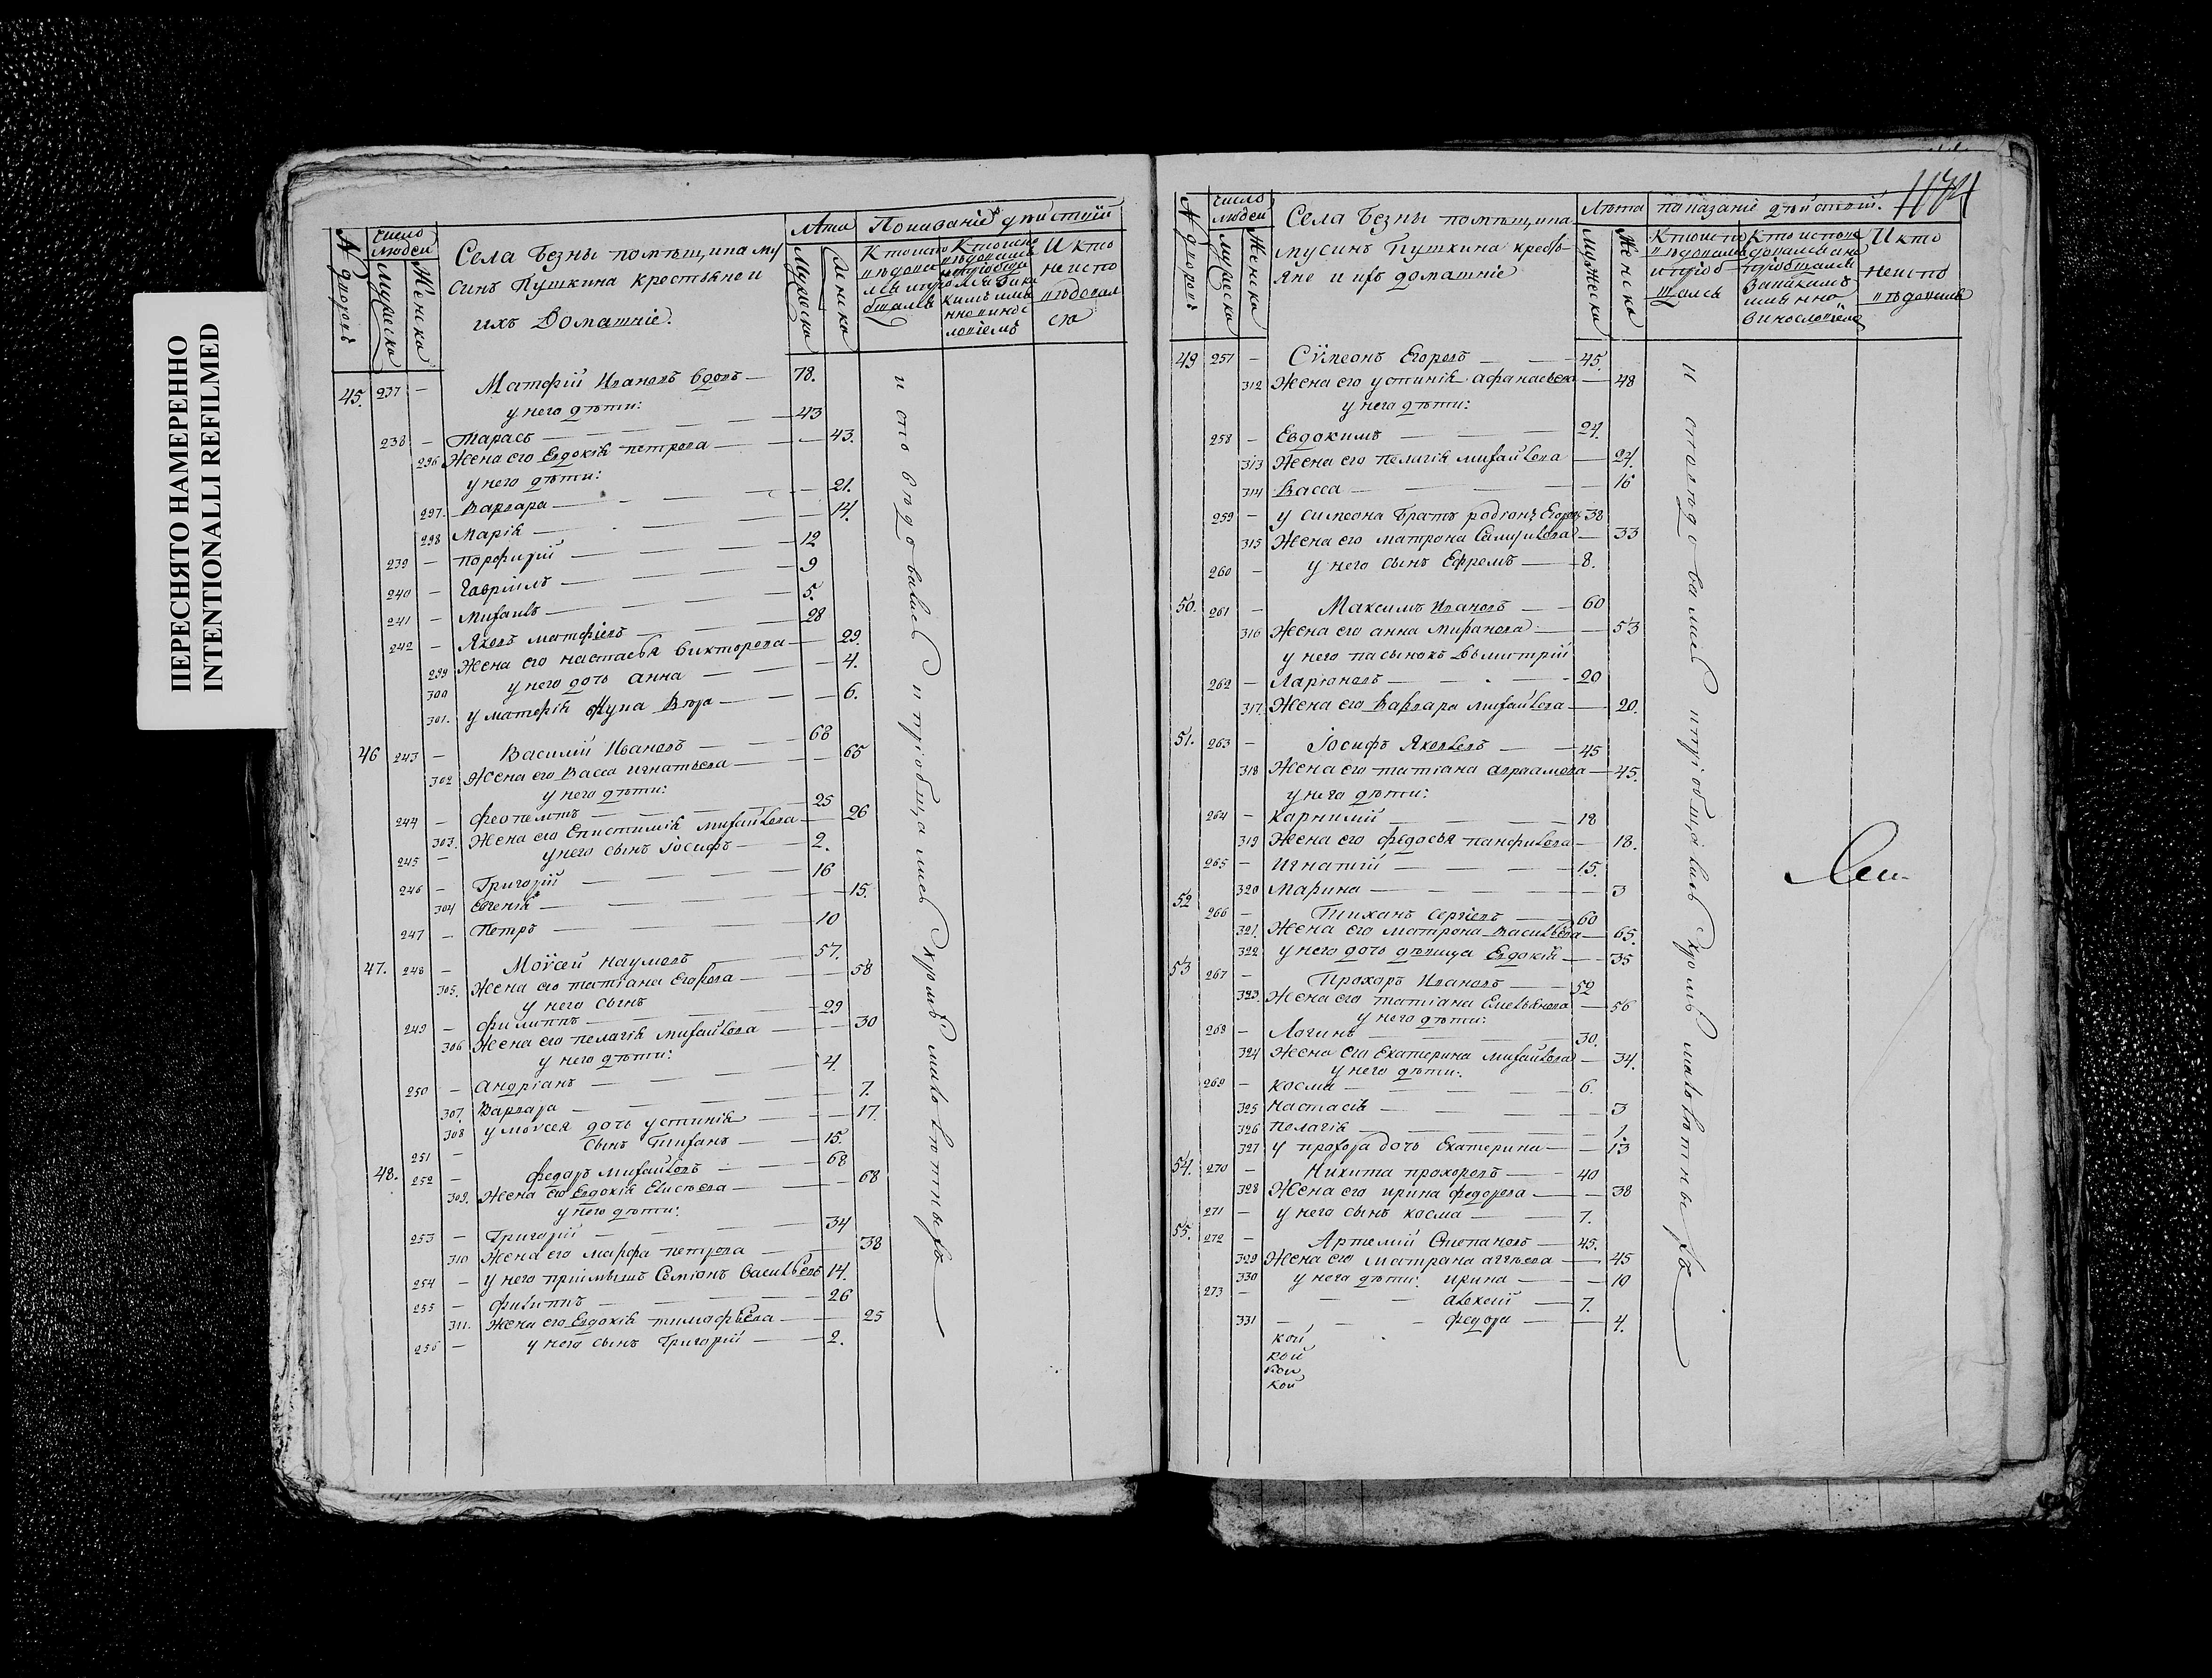 ПЕРЕСНЯТО НАМЕРЕННО
INTENTIONALLI REFILMED
№ дворовъ
число людей
Мужеска
Женска
Села Безны помѣщика му
синъ Пушкина крестьяне и
ихъ Домашніе.
лѣта
Мужеска
женска
И кто
неиспо
вѣдовал
ся
45. 237 – Матфій Ивановъ вдовъ — 78.
у него дѣти:
238 – Тарасъ — 43
296 Жена его Евдокія петрова — 43.
у него дѣти:
297. Варвара — 21.
298 Марія — 14.
239 – Порфирій — 12
240 – Гавріилъ — 9
241 – Михаилъ — 5.
242 – Яковъ матфіевъ — 28
299 Жена его настасья викторова — 29.
300 у него дочь анна — 4.
301. у матфія внука Вѣра — 6.
46 243 – Василій Ивановъ — 68
302 Жена его Васса игнатьева — 65
у него дѣти:
244 – феопемптъ — 25
303. Жена его Епистимія михайлова — 26
245 – у него сынъ іосифъ — 2.
246 – Григорій — 16
304 Евгенія — 15.
247 – Петръ — 10
47. 248 – Моѵсей наумовъ — 57.
305. Жена его татіана Егорова — 58
у него сынъ
249 – филиппъ — 29
306 Жена его пелагія михайлова — 30
у него дѣти:
250 – андріанъ — 4.
307. Варвара — 7.
308 у моѵсея дочь устинія — 17.
251 – сынъ тиханъ — 15.
48. 252 – федаръ михайловъ — 68
309. Жена его Евдокія Елисѣева — 68
у него дѣти:
253 – Григорій — 34
310 Жена его марфа петрова — 38
254 – у него пріимышъ Семіонъ васильевъ 14.
255 – филиппъ — 26
311. Жена его Евдокія тимофѣева — 25
256 – у него сынъ Григорій — 2.
исповѣдовались и пріобщались кромѣ малолѣтныхъ
1174
№ дворовъ
число людей
Мужеска
Женска
Села Безны помѣщика
мусинъ Пушкина кресть-
яне и ихъ домашніе
Лѣта
Мужеска
Женска
показаніе дѣйствій.
И кто
неиспо
вѣдовался
49 257 – Сѵмеонъ Егоровъ — 45.
312 Жена его устинія афанасьева — 48
у него дѣти:
258 – Евдокимъ — 24.
313 Жена его пелагія михайлова — 24.
314 Васса — 16
259 – у симеона братъ родіонъ Егоровъ 38
315 Жена его матрона Самуилова — 33
260 – у него сынъ Ефремъ — 8.
50. 261 – Максимъ Ивановъ — 60
316 Жена его анна миранова — 53
у него пасынокъ Дѣмитрій
262 – Ларіоновъ — 20
317. Жена его Варвара михайлова — 20.
51. 263 – Іосифъ Яковлевъ — 45
318 Жена его татіана авраамова — 45.
у него дѣти:
264 – карнилій — 18
319 Жена его федосья панфилова — 18.
265 – игнатій — 15.
320 Марина — 3
52 266 – Тиханъ Сергіевъ — 60
321. Жена его матрона Васильева — 65.
322 у него дочь дѣвица Евдокія — 35
53 267 – Прохоръ Ивановъ — 52
323. Жена его татіана Емельянова — 56
у него дѣти:
268 – Логинъ — 30.
324 Жена его Екатерина михайлова — 34.
у него дѣти:
269 – косма — 6.
325 настасія — 3
326 пелагія — 1
327 у прохора дочь Екатерина — 13
54. 270 – Никита прохоровъ — 40
328 Жена его ирина федорова — 38
271 – у него сынъ косма — 7.
55. 272 – Артемій Степановъ — 45.
329 Жена его матрана аггѣева — 45
330 у него дѣти: ирина — 10
273 – алексій — 7.
331 – федора — 4.
кой
кой
кои
кой
исповѣдовались и пріобщались кромѣ малолѣтныхъ